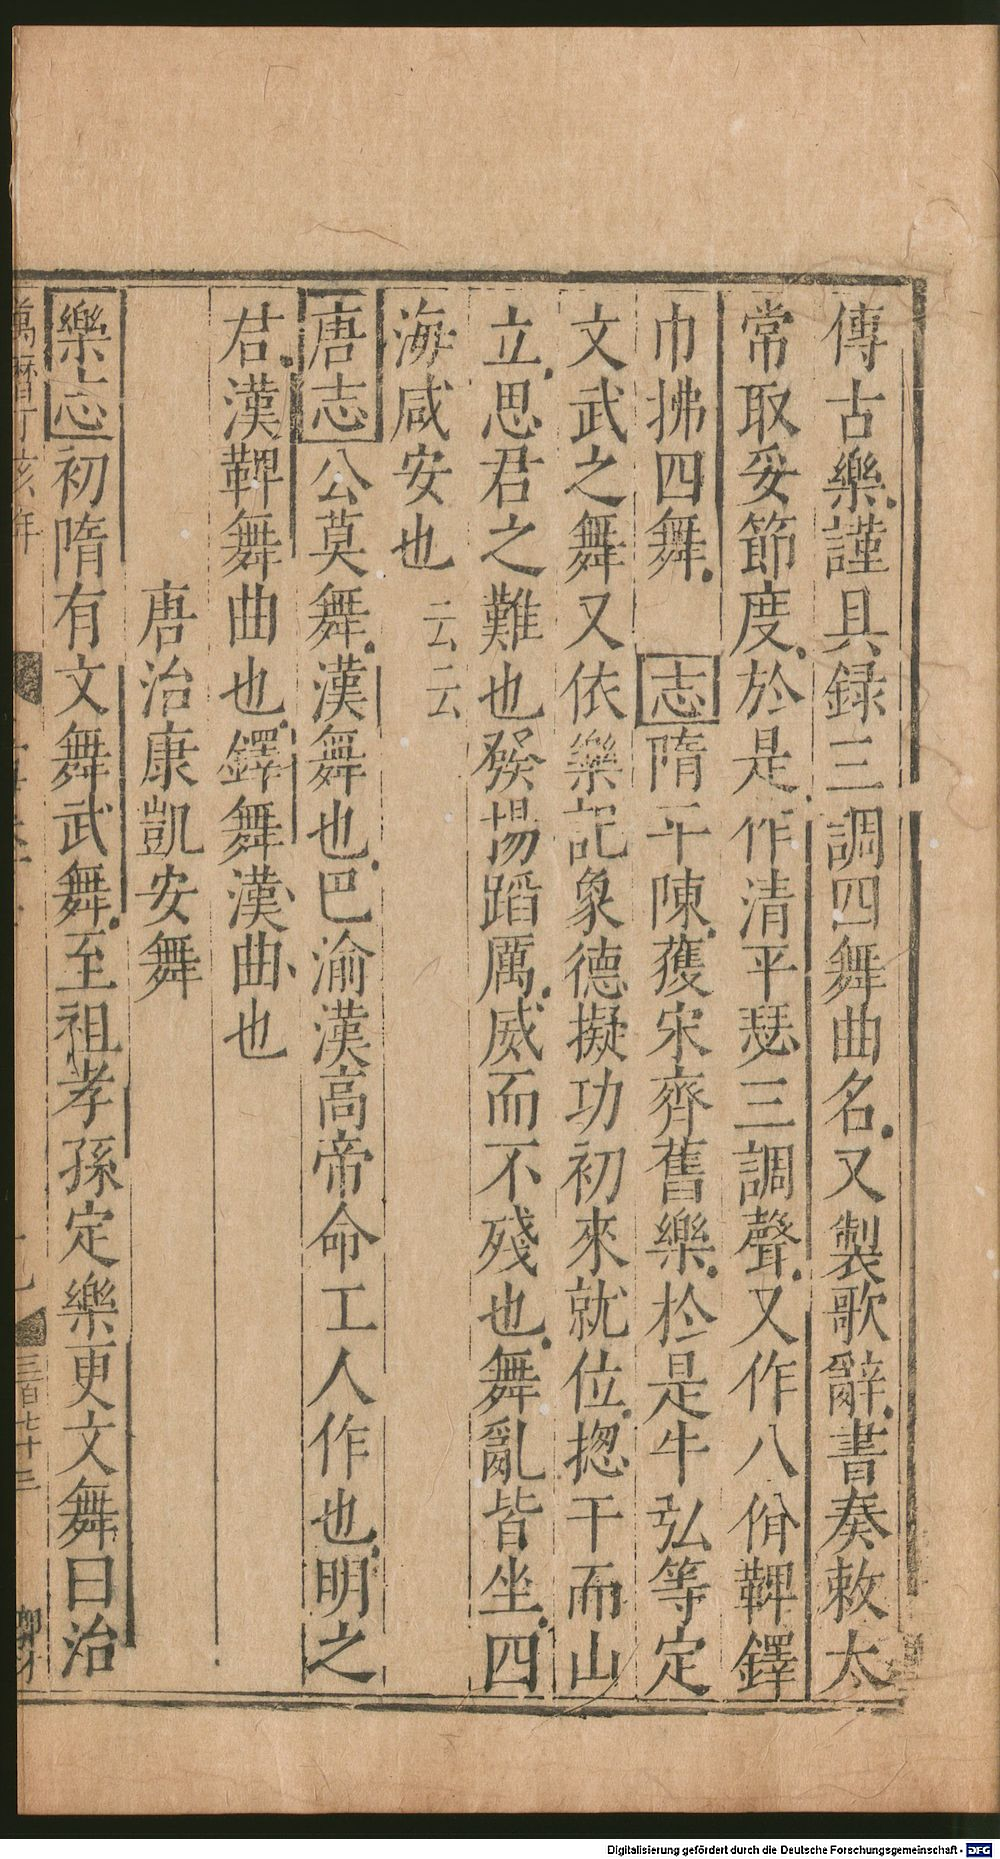 傳古樂謹具録三調四舞曲名又製歌辭書奏敕太
常取妥節度於是作清平瑟三調聲又作八佾鞞鐸
巾拂四舞 志隋平陳獲宋齊舊樂於是牛弘等定
文武之舞又依樂記象德擬功初來就位揔干而山
立思君之難也發揚蹈厲威而不殘也舞亂皆坐四
海咸安也云云
唐志公莫舞漢舞也巴渝漢高帝命工人作也明之
君漢鞞舞曲也鐸舞漢曲也
唐治康凱安舞
樂志初隋有文舞武舞至祖孝孫定樂更文舞曰治
萬曆丁亥年
三百七十三
Digitalisierung gefördert durch die Deutsche Forschungsgemeinschaft - DFG